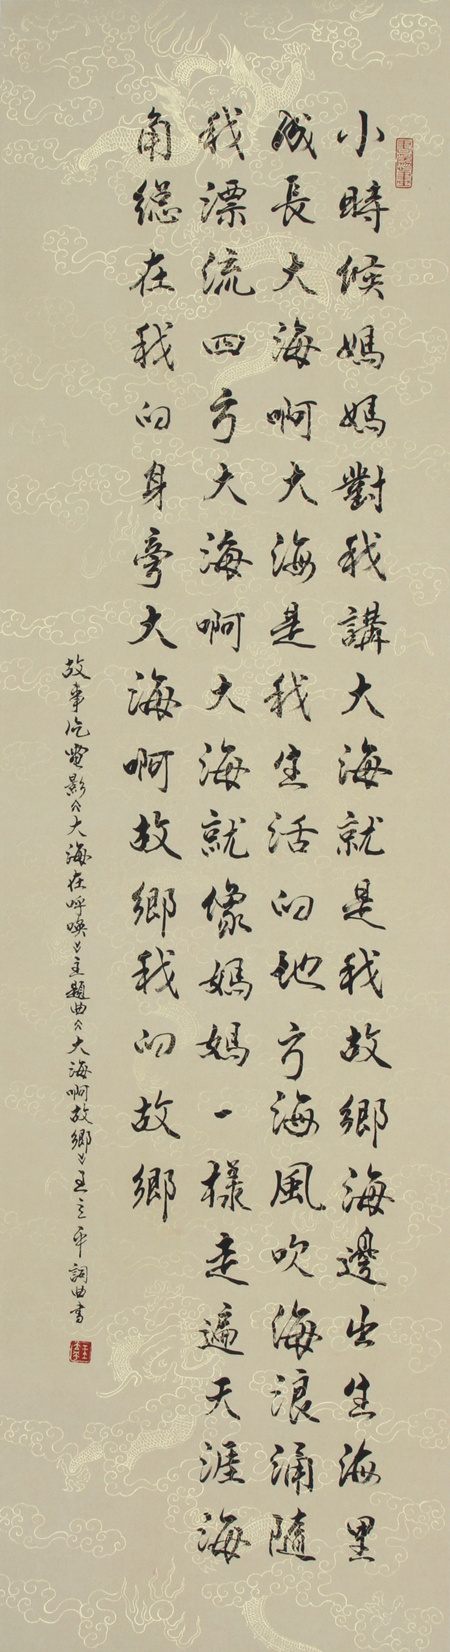 小時候媽媽對我講大海就是我故鄉海邊出生海里
成長大海啊大海是我生活的地方海風吹海浪涌隨
我漂流四方大海啊大海就像媽媽一樣走遍天涯海
角總在我的身旁大海啊故鄉我的故鄉
故事片電影《大海在呼喚》主題曲《大海啊故鄉》王立平詞曲書